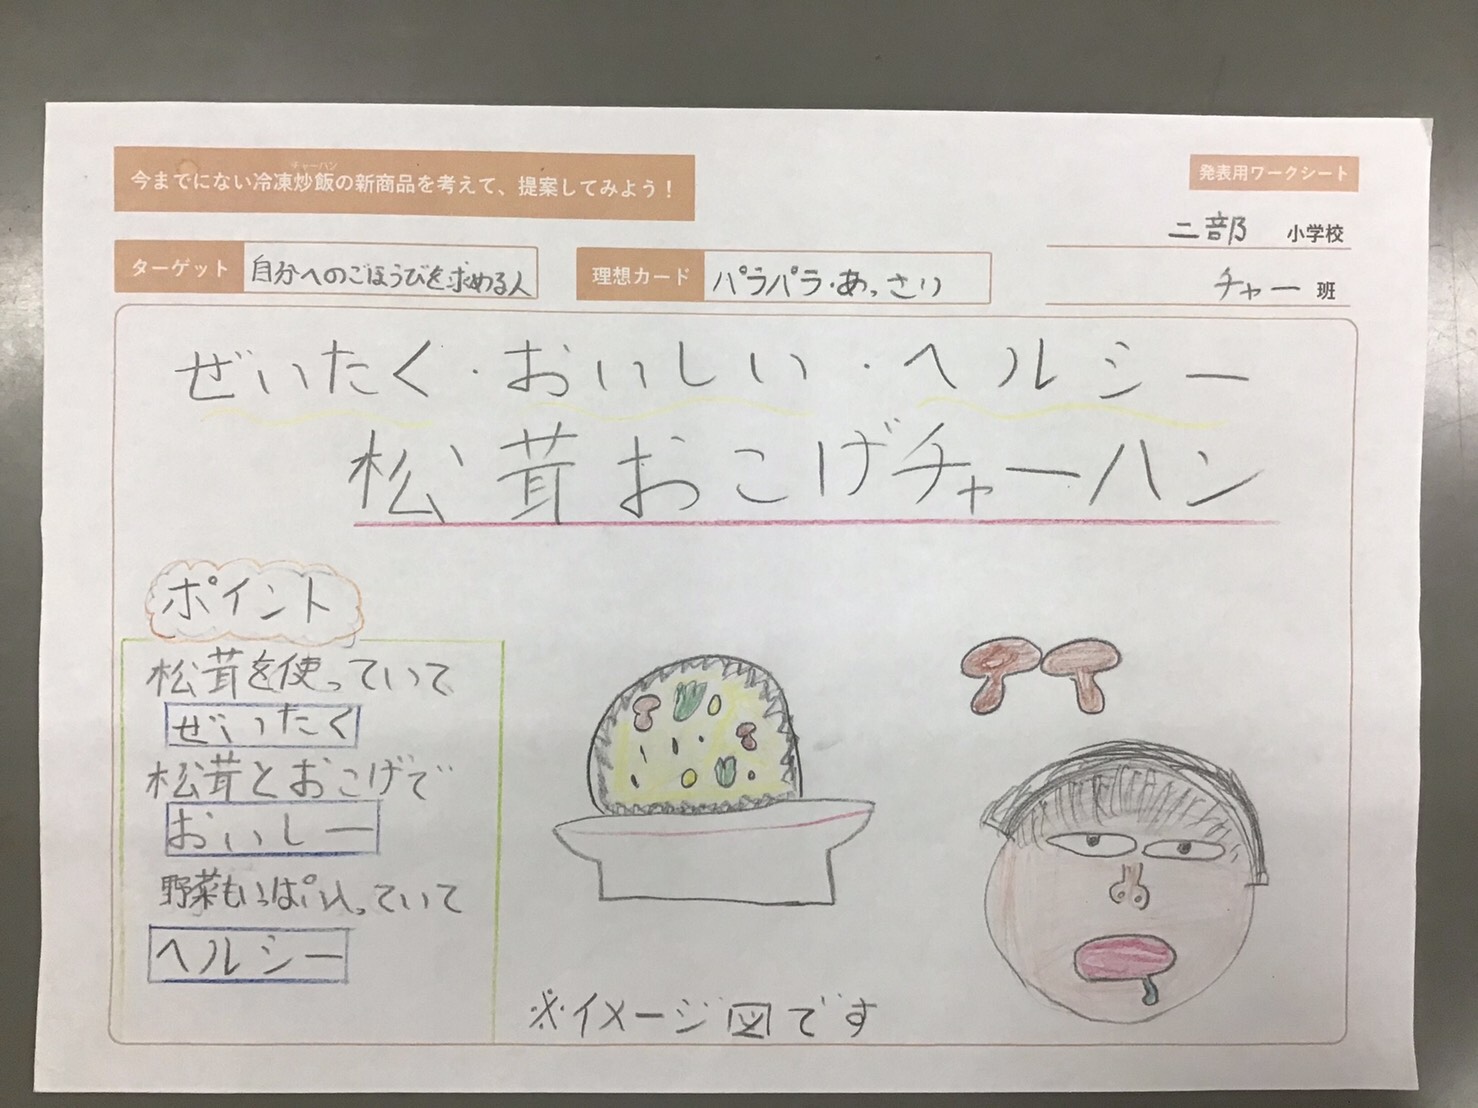 チャーハン
今までにない冷凍炒飯の新商品を考えて、提案してみよう！
発表用ワークシート
二部 小学校
ターゲット 自分へのごほうびを求める人
理想カード パラパラ・あっさり
チャー 班
ぜいたく・おいしい・ヘルシー
松茸おこげチャーハン
ポイント
松茸を使っていて
ぜいたく
松茸とおこげで
おいしー
野菜もいっぱい入っていて
ヘルシー
※イメージ図です